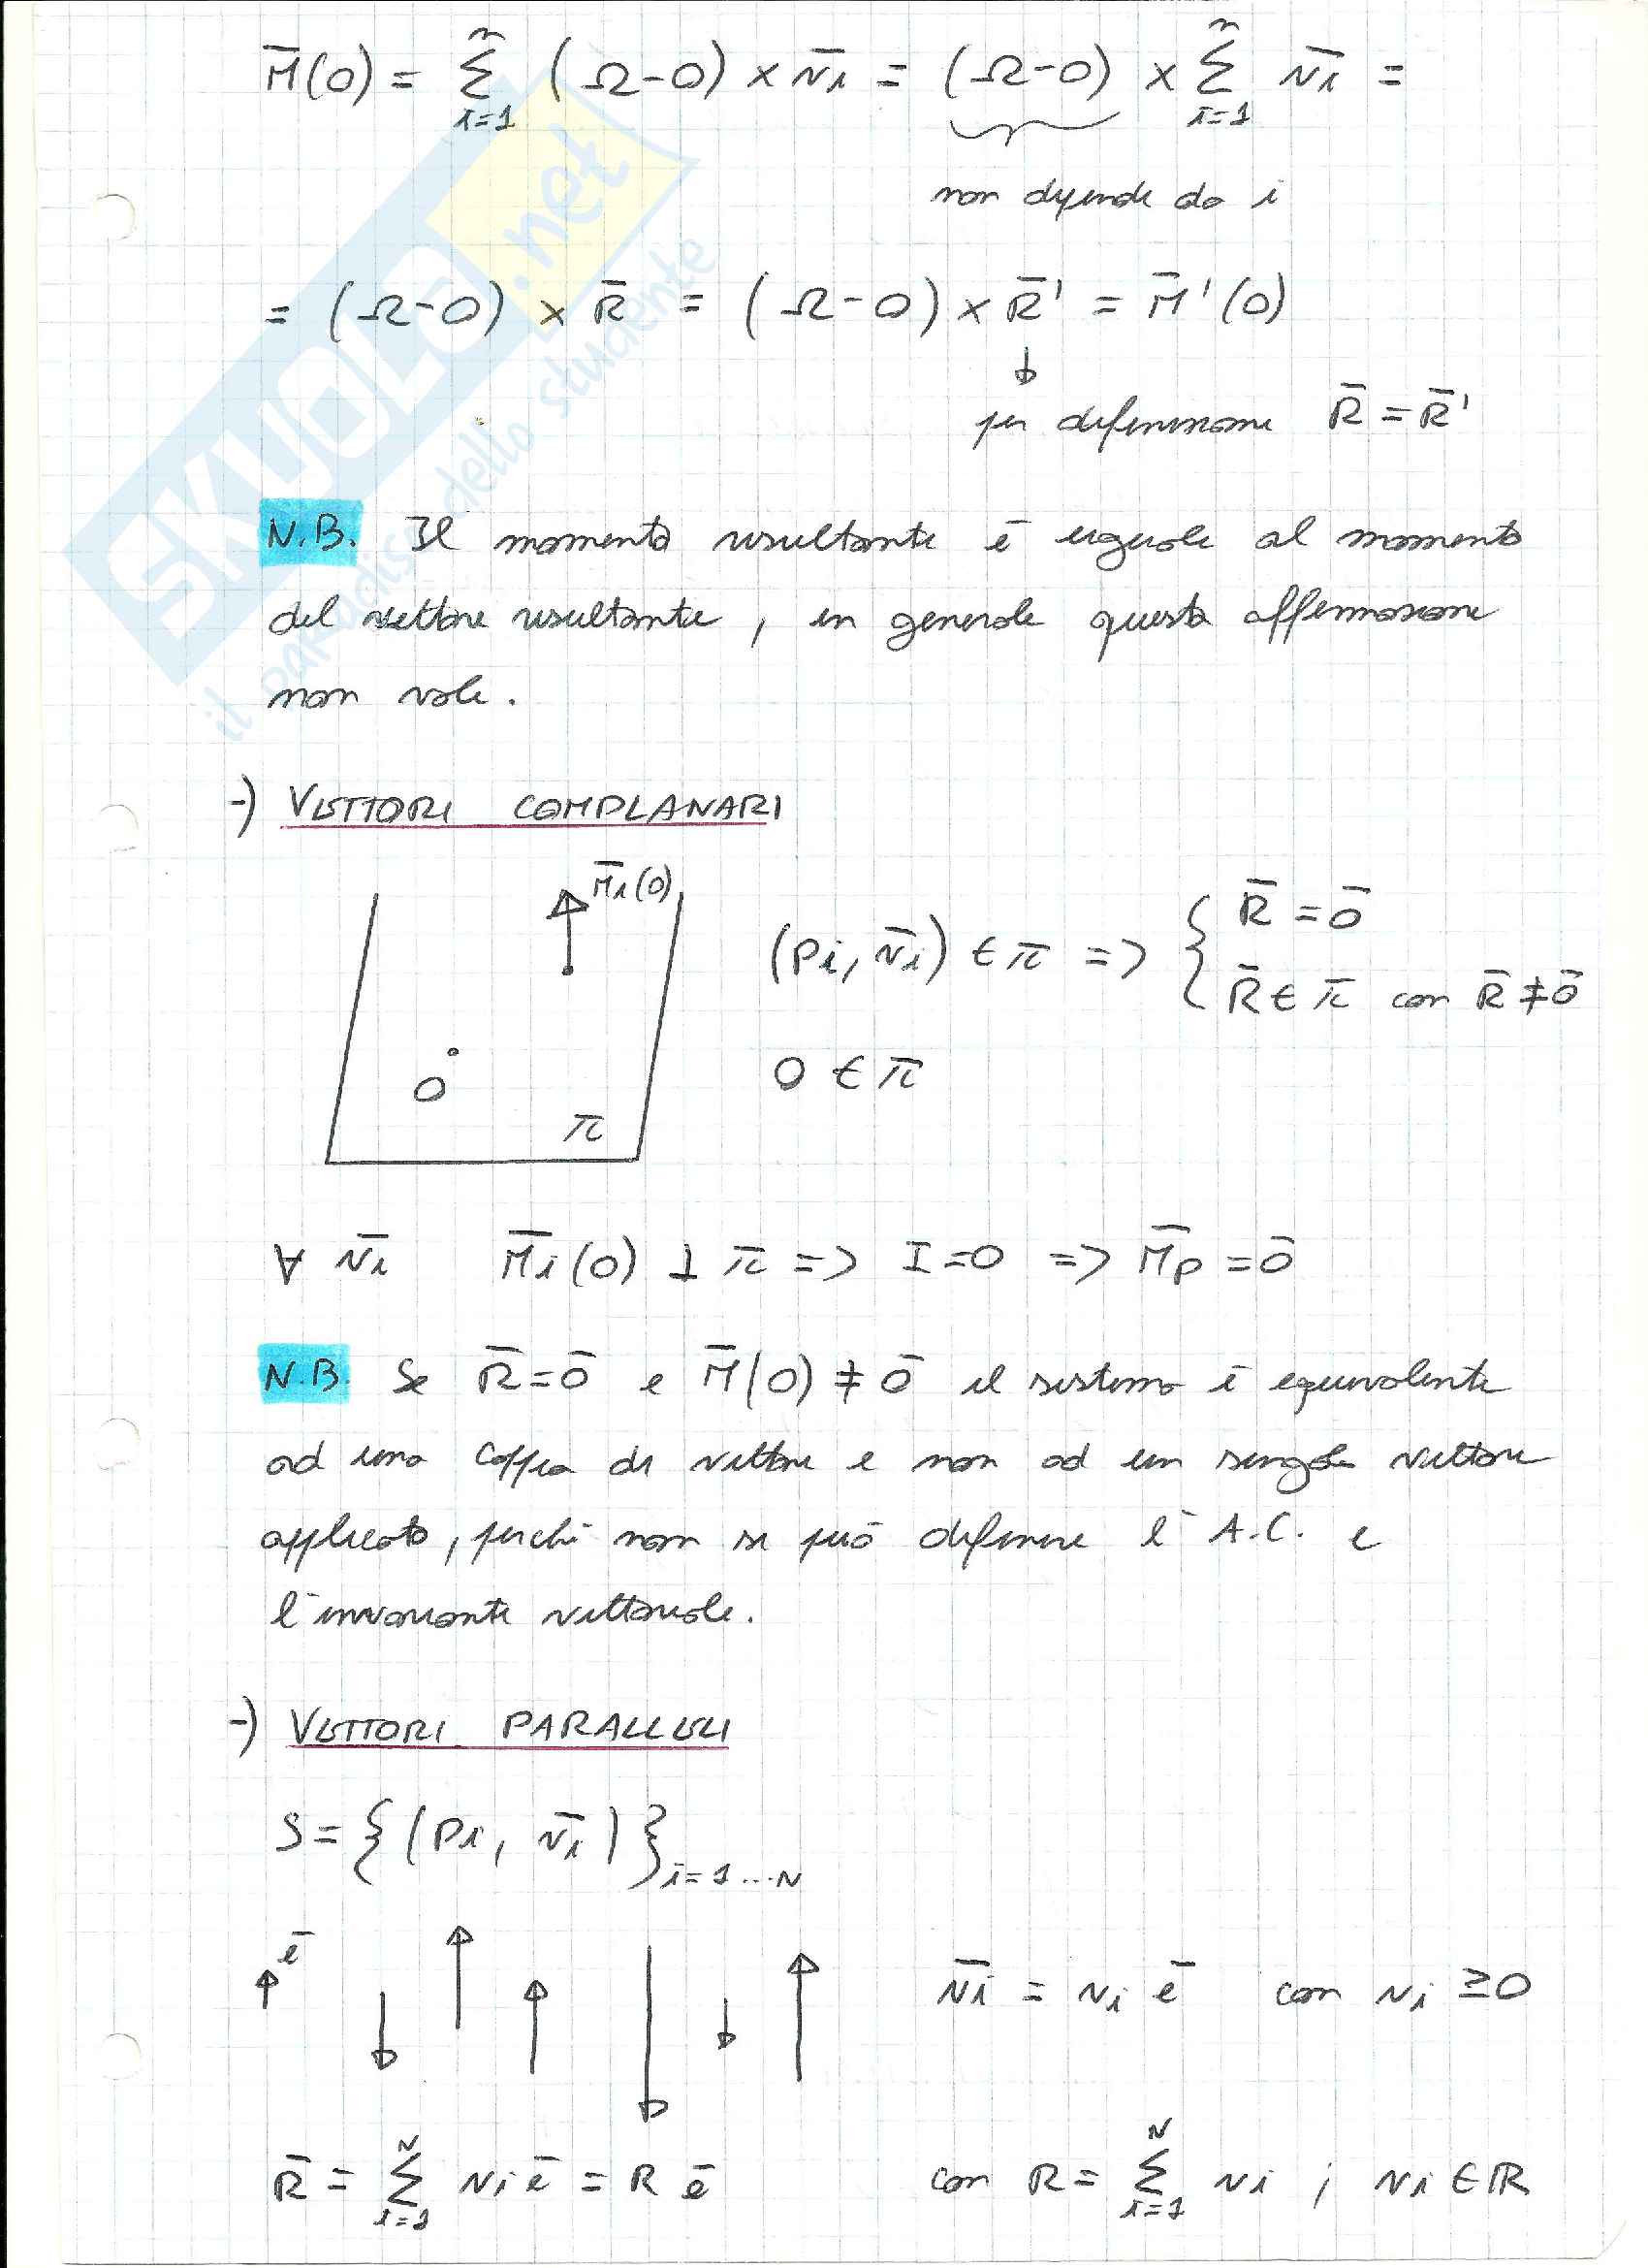 M̄(O) = Σ_{i=1}^{n} (Ω-O) × v̄i = (Ω-O) × Σ_{i=1}^{n} v̄i =
non dipende da i
= (Ω-O) × R̄ = (Ω-O) × R̄' = M̄'(O)
↓
per definizione R̄ = R̄'
N.B. Il momento risultante è uguale al momento
del vettore risultante, in generale questa affermazione
non vale.
-) VETTORI COMPLANARI
M̄i(O)
(Pi, v̄i) ∈ π => { R̄ = ō
R̄ ∈ π con R̄ ≠ ō
O ∈ π
O
π
∀ v̄i M̄i(O) ⊥ π => I=0 => M̄p = ō
N.B. Se R̄ = ō e M̄(O) ≠ ō il sistema è equivalente
ad una coppia di vettori e non ad un singolo vettore
applicato, perché non si può definire l'A.C. e
l'invariante vettoriale.
-) VETTORI PARALLELI
S = {(Pi, v̄i)}i=1...N
ē
v̄i = vi ē con vi ≥ 0
R̄ = Σ_{i=1}^{N} vi ē = R ē con R = Σ_{i=1}^{N} vi ; vi ∈ ℝ
SKUOLA.net
il paradiso dello studente